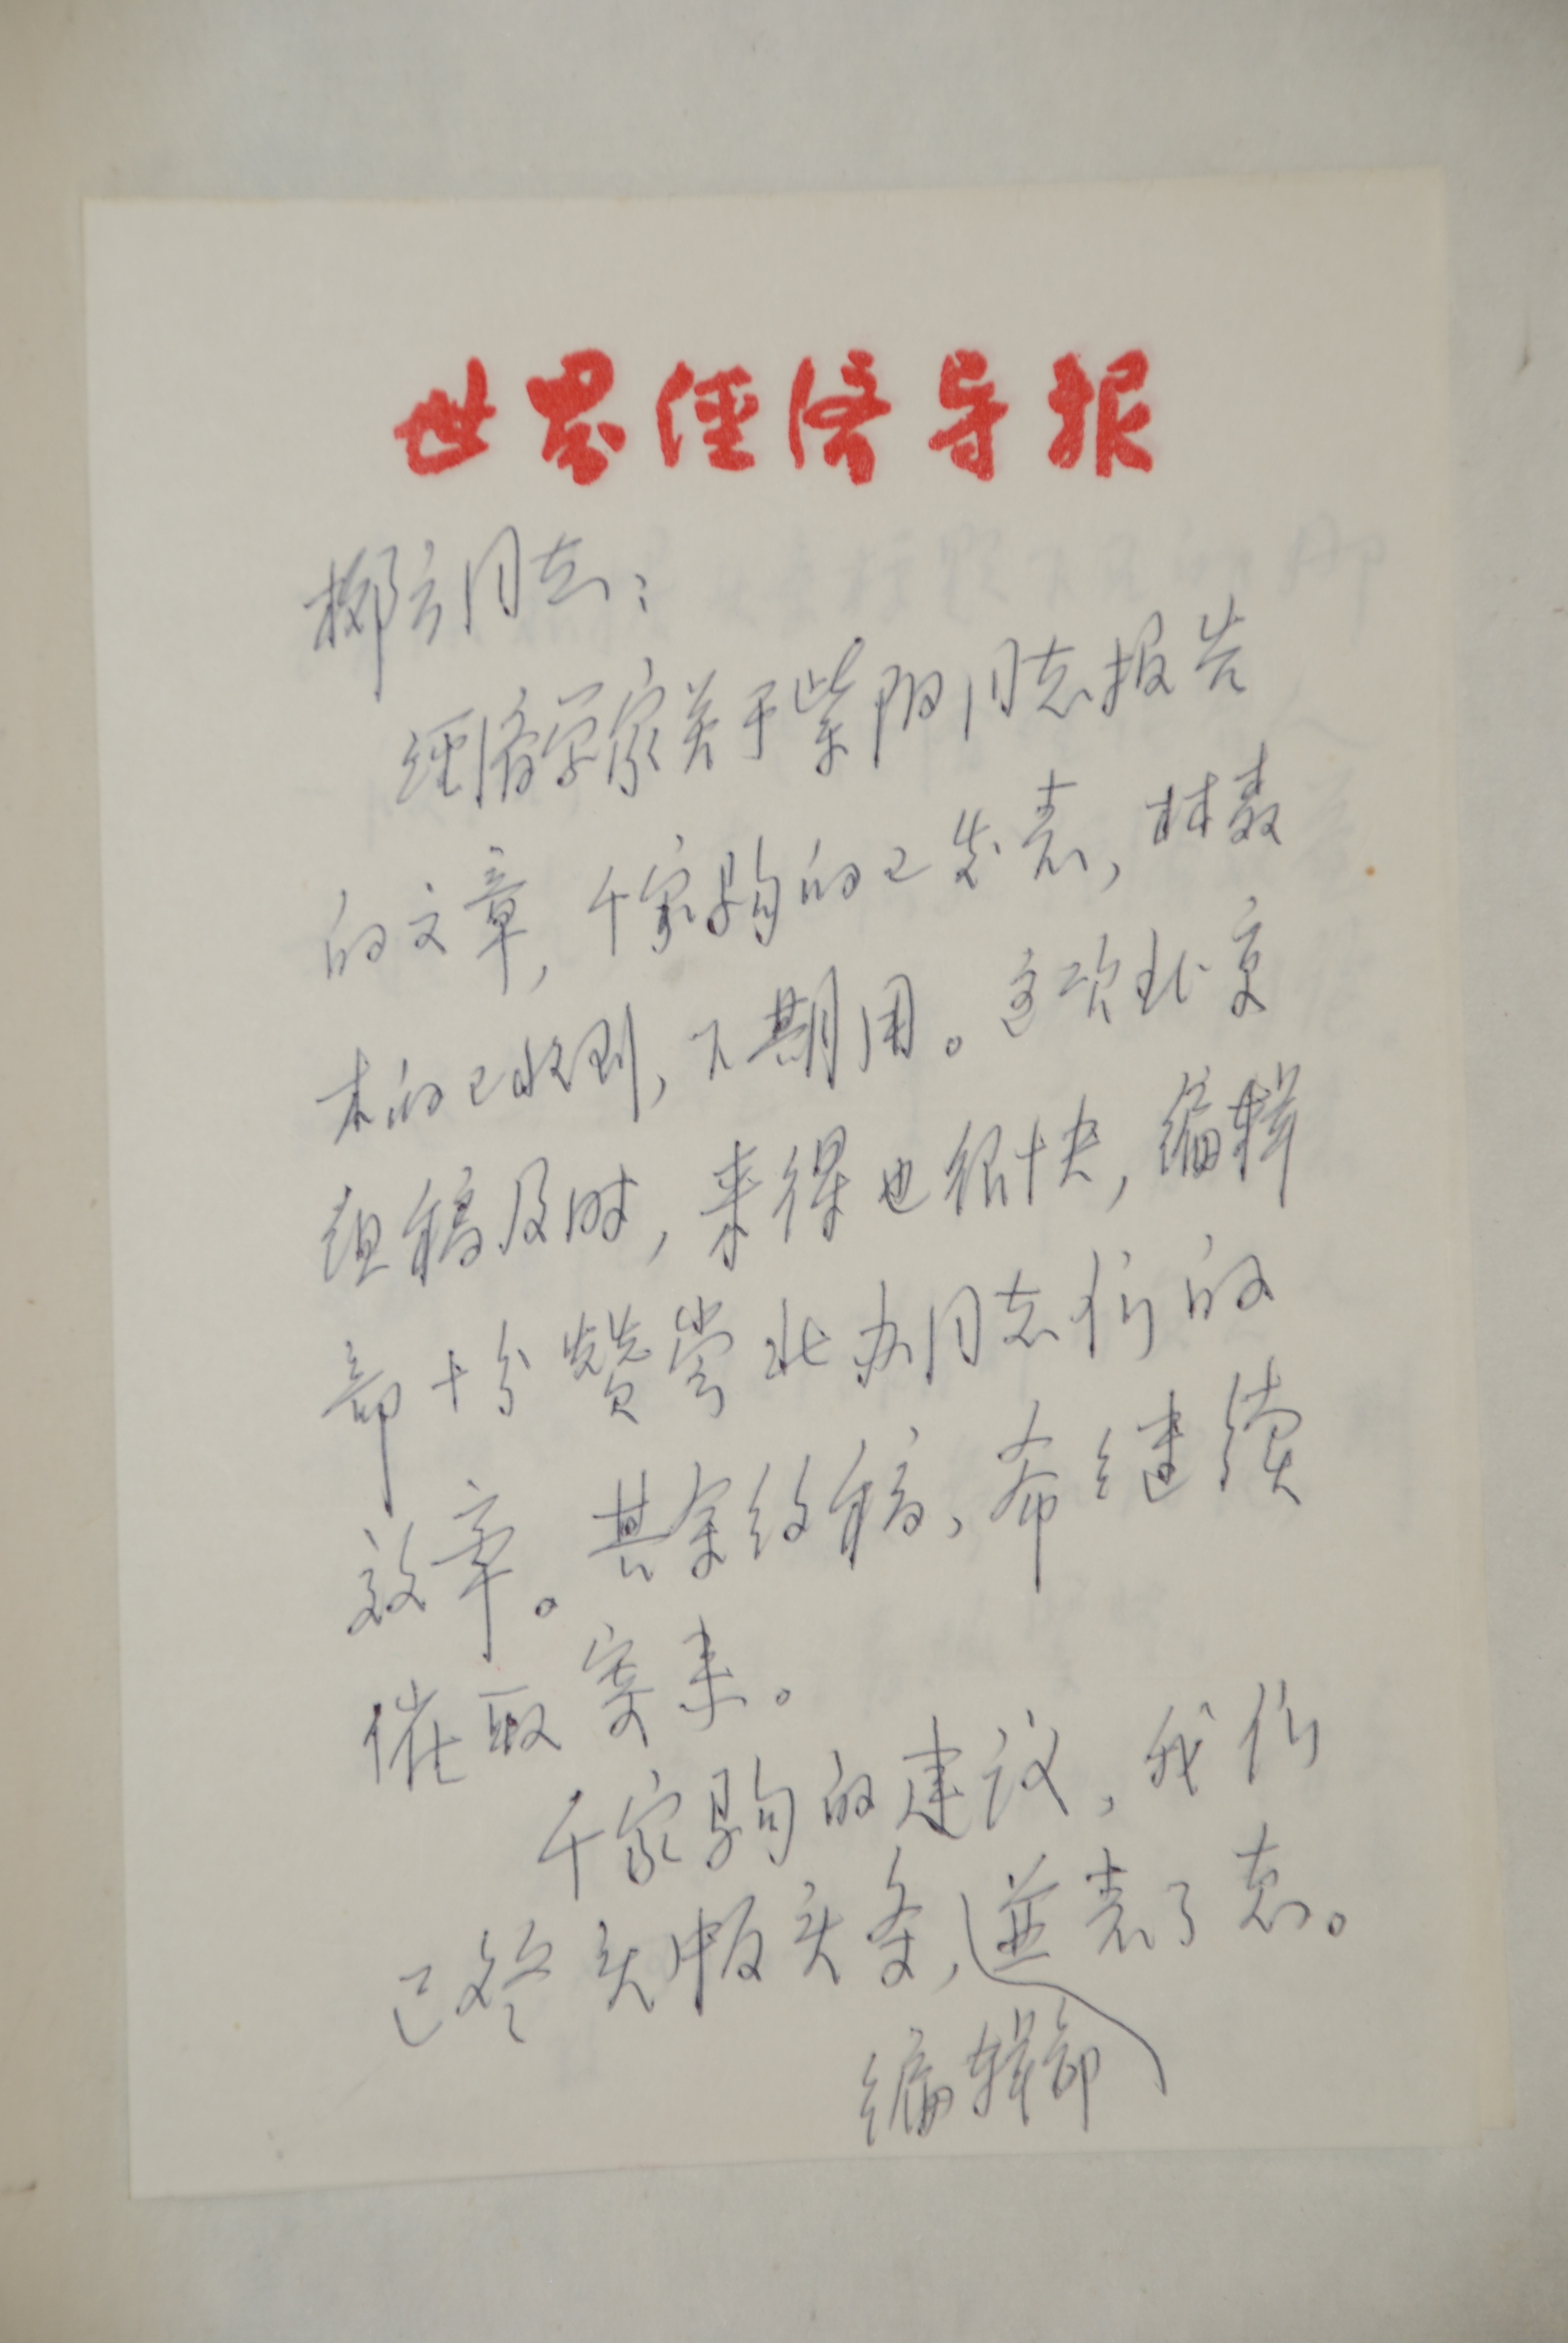 世界经济导报
同志：
经济学家关于紫阳同志报告
的文章，千家驹的已发表，林
的已收到，下期用。这次北京
组稿及时，来得也很快，编辑
部十分赞赏北办同志们的
效率。其余约稿，希继续
催取寄来。
千家驹的建议，我们
已发头版头条，并表了态。
编辑部